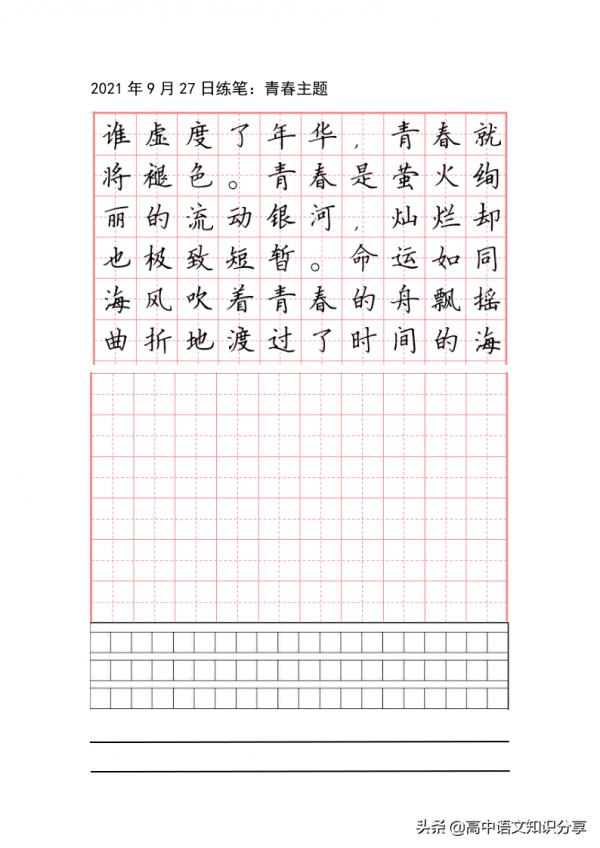 2021年9月27日练笔：青春主题
谁虚度了年华，青春就
将褪色。青春是萤火绚
丽的流动银河，灿烂却
也极致短暂。命运如同
海风吹着青春的舟飘摇
曲折地渡过了时间的海
头条@高中语文知识分享